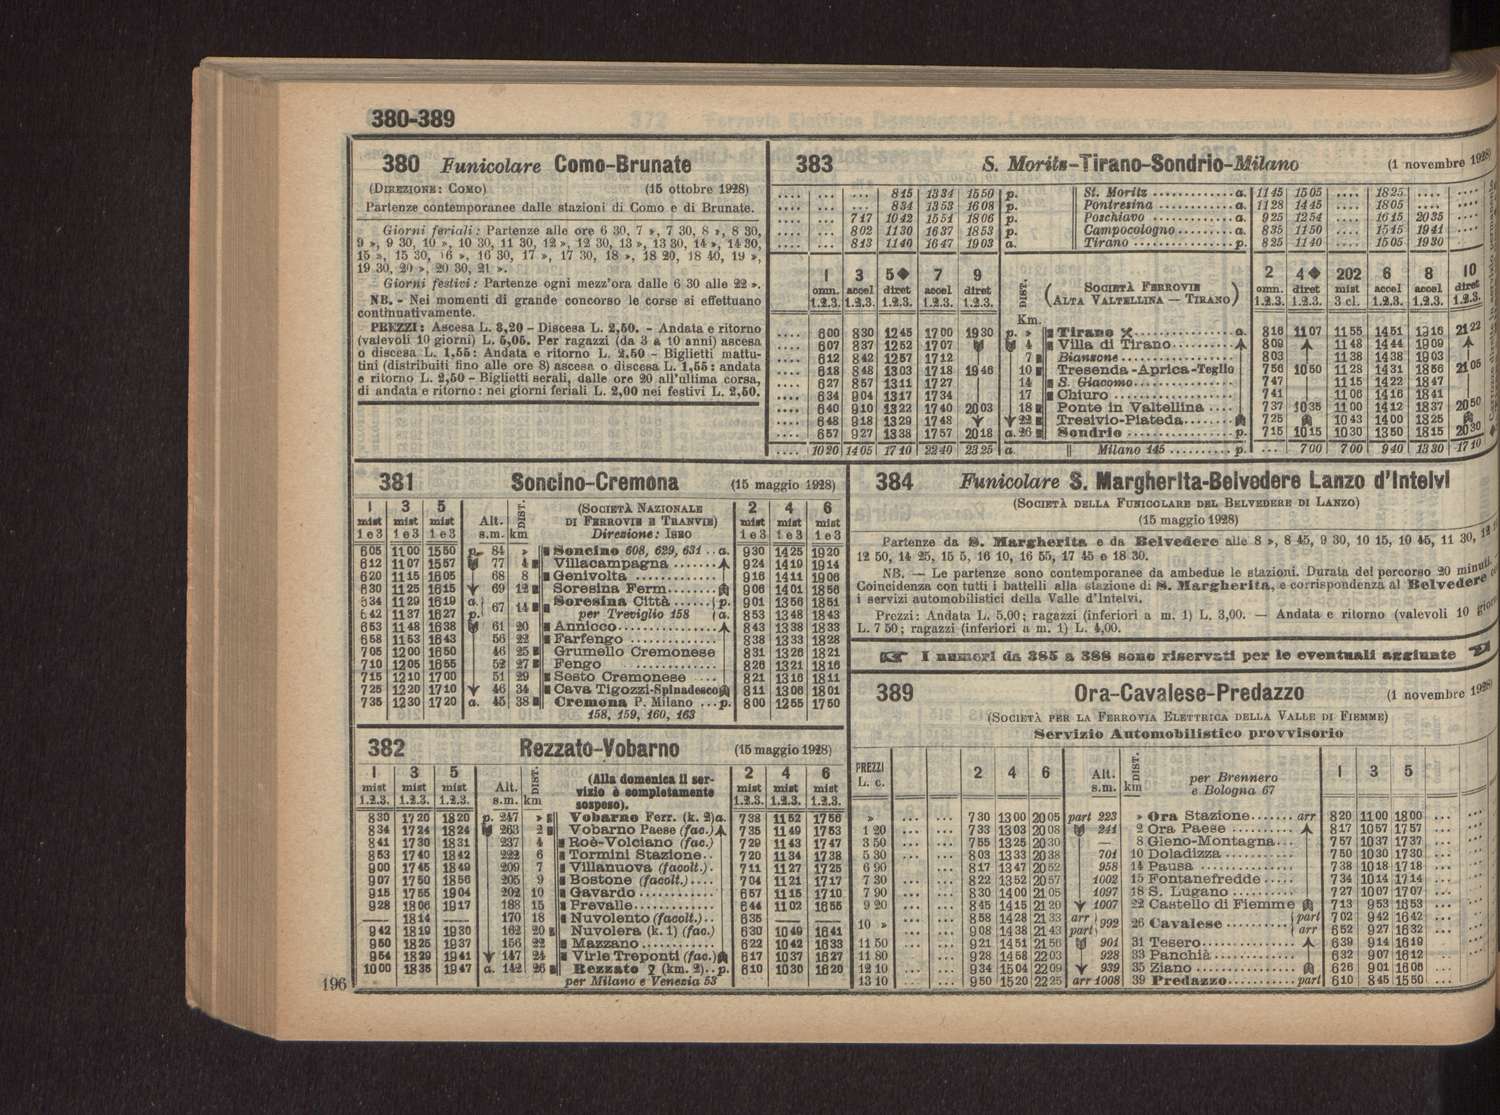 380-389
380 Funicolare Como-Brunate
(DIREZIONE: COMO) (15 ottobre 1928)
Partenze contemporanee dalle stazioni di Como e di Brunate.
Giorni feriali: Partenze alle ore 6 30, 7 », 7 30, 8 », 8 30,
9 », 9 30, 10 », 10 30, 11 30, 12 », 12 30, 13 », 13 30, 14 », 14 30,
15 », 15 30, 16 », 16 30, 17 », 17 30, 18 », 18 20, 18 40, 19 »,
19 30, 20 », 20 30, 21 ».
Giorni festivi: Partenze ogni mezz'ora dalle 6 30 alle 22 ».
NB. - Nei momenti di grande concorso le corse si effettuano
continuativamente.
PREZZI: Ascesa L. 3,20 - Discesa L. 2,50. - Andata e ritorno
(valevoli 10 giorni) L. 5,05. Per ragazzi (da 3 a 10 anni) ascesa
o discesa L. 1,55: Andata e ritorno L. 2,50 - Biglietti mattu-
tini (distribuiti fino alle ore 8) ascesa o discesa L. 1,55: andata
e ritorno L. 2,50 - Biglietti serali, dalle ore 20 all'ultima corsa,
di andata e ritorno: nei giorni feriali L. 2,00 nei festivi L. 2,50.
383 S. Moritz-Tirano-Sondrio-Milano (1 novembre 1928)
.... ... ... 845 1334 1550 p. St. Moritz ............ a. 1145 1505 .... 1825 .... ....
.... ... ... 834 1353 1608 p. Pontresina ............ a. 1128 1445 .... 1805 .... ....
.... ... 717 1042 1551 1806 p. Poschiavo ............ a. 925 1254 .... 1615 2035 ....
.... ... 802 1130 1637 1853 p. Campocologno ........ a. 835 1150 .... 1545 1941 ....
.... ... 813 1140 1647 1903 a. Tirano ............... p. 825 1140 .... 1505 1930 ....
1 3 5◆ 7 9 2 4◆ 202 6 8 10
omn. accel diret accel diret DIST. SOCIETÀ FERROVIE omn. diret mist accel accel diret
1.2.3. 1.2.3. 1.2.3. 1.2.3. 1.2.3. (ALTA VALTELLINA — TIRANO) 1.2.3. 1.2.3. 3 cl. 1.2.3. 1.2.3. 1.2.3.
Km.
.... 600 830 1245 1700 1930 p. » Tirano ............... a. 816 1107 1155 1451 1916 2122
.... 607 837 1252 1707 4 Villa di Tirano .......... 809 1148 1444 1909
.... 612 842 1257 1712 7 Bianzone ............... 803 1138 1438 1903
.... 618 848 1303 1718 1946 10 Tresenda-Aprica-Teglio 756 1050 1128 1431 1856 2105
.... 627 857 1311 1727 14 S. Giacomo ............. 747 1115 1422 1847
.... 634 904 1317 1734 17 Chiuro ................ 741 1106 1416 1841
.... 640 910 1322 1740 2003 18 Ponte in Valtellina .... 737 1035 1100 1412 1837 2050
.... 648 918 1329 1748 22 Tresivio-Piateda ........ 725 1043 1400 1825
.... 657 927 1338 1757 2018 a. 26 Sondrio ............... p. 715 1015 1030 1350 1815 2030
.... 1020 1405 1710 2240 2325 a. Milano 145 .......... p. ... 700 700 940 1330 1710
381 Soncino-Cremona (15 maggio 1928)
1 3 5 (SOCIETÀ NAZIONALE 2 4 6
mist mist mist Alt. DIST. DI FERROVIE E TRANVIE) mist mist mist
1 e 3 1 e 3 1 e 3 s.m. km Direzione: ISEO 1 e 3 1 e 3 1 e 3
605 1100 1550 p. 84 » Soncino 608, 629, 631 .. a. 930 1425 1920
612 1107 1557 77 4 Villacampagna ....... 924 1419 1914
620 1115 1605 68 8 Genivolta ............ 916 1411 1906
630 1125 1615 69 12 Soresina Ferm. ....... 906 1401 1856
634 1129 1619 a. 67 14 Soresina Città ...... p. 901 1356 1851
642 1137 1627 p. per Treviglio 158 a. 853 1348 1843
653 1148 1638 61 20 Annicco ............... 843 1338 1833
658 1153 1643 56 22 Farfengo ............. 838 1333 1828
705 1200 1650 46 25 Grumello Cremonese 831 1326 1821
710 1205 1655 52 27 Fengo .............. 826 1321 1816
715 1210 1700 51 29 Sesto Cremonese .... 821 1316 1811
725 1220 1710 46 34 Cava Tigozzi-Spinadesco 811 1306 1801
735 1230 1720 a. 45 38 Cremona P. Milano ... p. 800 1255 1750
158, 159, 160, 163
384 Funicolare S. Margherita-Belvedere Lanzo d'Intelvi
(SOCIETÀ DELLA FUNICOLARE DEL BELVEDERE DI LANZO)
(15 maggio 1928)
Partenze da S. Margherita e da Belvedere alle 8 », 8 45, 9 30, 10 15, 10 45, 11 30,
12 50, 14 25, 15 5, 16 10, 16 55, 17 45 e 18 30.
NB. — Le partenze sono contemporanee da ambedue le stazioni. Durata del percorso 20 minuti.
Coincidenza con tutti i battelli alla stazione di S. Margherita, e corrispondenza al Belvedere
i servizi automobilistici della Valle d'Intelvi.
Prezzi: Andata L. 5,00; ragazzi (inferiori a m. 1) L. 3,00. — Andata e ritorno (valevoli 10
L. 7 50; ragazzi (inferiori a m. 1) L. 4,00.
I numeri da 385 a 388 sono riservati per le eventuali aggiunte
382 Rezzato-Vobarno (15 maggio 1928)
1 3 5 (Alla domenica il ser- 2 4 6
mist mist mist Alt. DIST. vizio è completamente mist mist mist
1.2.3. 1.2.3. 1.2.3. s.m. km sospeso). 1.2.3. 1.2.3. 1.2.3.
830 1720 1820 p. 247 » Vobarno Ferr. (k. 2) a. 738 1152 1756
834 1724 1824 263 2 Vobarno Paese (fac.) 735 1149 1753
841 1730 1831 237 4 Roè-Volciano (fac.) 729 1143 1747
853 1740 1842 222 6 Tormini Stazione .. 720 1134 1738
900 1745 1849 209 7 Villanuova (facolt.) .. 711 1127 1725
907 1750 1856 205 9 Bostone (facolt.) .... 704 1121 1717
915 1755 1904 202 10 Gavardo ............ 657 1115 1710
928 1806 1917 188 15 Prevalle ............ 644 1102 1655
—— 1814 —— 170 18 Nuvolento (facolt.) .. 635 —— ——
942 1819 1930 162 20 Nuvolera (k. 1) (fac.) 630 1049 1641
950 1825 1937 156 22 Mazzano ........... 622 1042 1633
954 1829 1941 147 24 Virle Treponti (fac.) 617 1037 1627
1000 1835 1947 a. 142 26 Rezzato (km. 2) .. p. 610 1030 1620
per Milano e Venezia 53
389 Ora-Cavalese-Predazzo (1 novembre 1928)
(SOCIETÀ PER LA FERROVIA ELETTRICA DELLA VALLE DI FIEMME)
Servizio Automobilistico provvisorio
PREZZI L. c. ... ... 2 4 6 Alt. s.m. DIST. km per Brennero e Bologna 67 1 3 5
» ... ... 730 1300 2005 part 223 » Ora Stazione ....... arr 820 1100 1800 ...
1 20 733 1303 2008 241 2 Ora Paese ......... 817 1057 1757 ...
3 50 755 1325 2030 — 8 Gleno-Montagna ... 757 1037 1737 ...
5 30 803 1333 2038 701 10 Doladizza ........... 750 1030 1730 ...
6 90 817 1347 2052 958 14 Pausa .............. 738 1018 1718 ...
7 30 ... ... 822 1352 2057 1002 15 Fontanefredde .... 734 1014 1714 ...
7 90 ... ... 830 1400 2105 1097 18 S. Lugano .......... 727 1007 1707 ...
9 20 ... ... 845 1415 2120 1007 22 Castello di Fiemme 713 953 1653 ...
10 » ... ... 858 1428 2133 arr 992 26 Cavalese .......... part 702 942 1642 ...
908 1438 2143 part arr 652 927 1632 ...
11 50 ... ... 921 1451 2156 901 31 Tesero ............. 639 914 1619 ...
11 80 ... ... 928 1458 2203 928 33 Panchià ........... 632 907 1612 ...
12 10 ... ... 934 1504 2209 939 35 Ziano ............. 626 901 1606 ...
13 10 ... ... 950 1520 2225 arr 1008 39 Predazzo .......... part 610 845 1550 ...
196